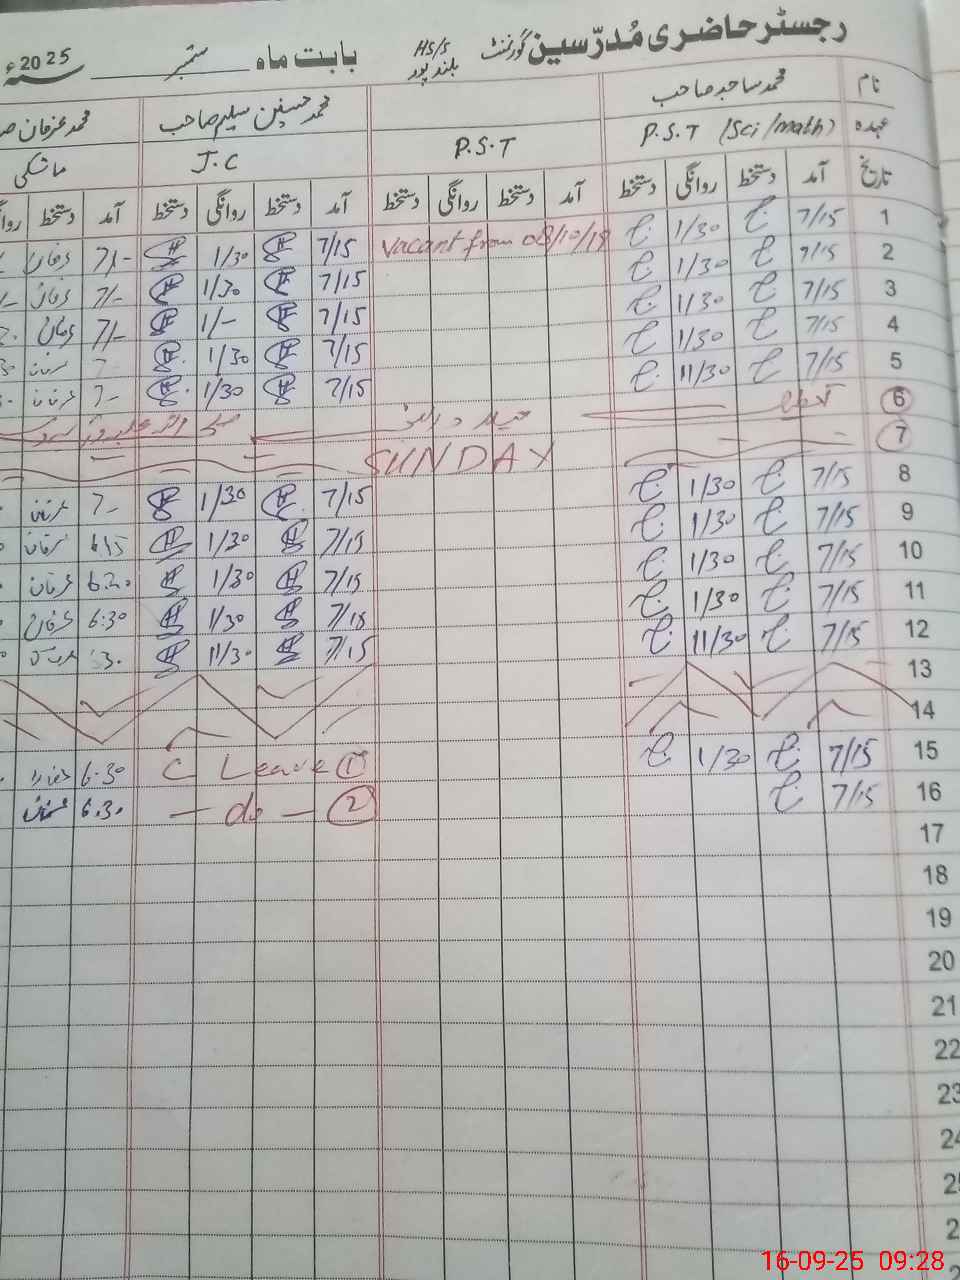 رجسٹر حاضری مُدرّسین گورنمنٹ HS/S بلند پور بابت ماہ ستمبر سنہ 2025ء
نام محمد ساجد صاحب محمد حسنین سلیم صاحب محمد عرفان
عہدہ P.S.T (Sci/math) P.S.T J.C ماشکی
تاریخ آمد دستخط روانگی دستخط آمد دستخط روانگی دستخط آمد دستخط روانگی دستخط آمد دستخط
1 7/15 1/30 Vacant from 08/10/19 7/15 1/30 7/-
2 7/15 1/30 7/15 1/30 7/-
3 7/15 1/30 7/15 1/- 7/-
4 7/15 1/30 7/15 1/30
5 7/15 11/30 7/15 1/30 7/-
6 تعطیل عید میلاد النبی صلی اللہ علیہ وآلہ وسلم
7 SUNDAY
8 7/15 1/30 7/15 1/30 عرفان 7/-
9 7/15 1/30 7/15 1/30 عرفان 6:15
10 7/15 1/30 7/15 1/30 عرفان 6:20
11 7/15 1/30 7/15 1/30 عرفان 6:30
12 7/15 11/30 7/15 11/30
13
14
15 7/15 1/30 C Leave 1 6:30
16 7/15 — do — 2 6:30
17
18
19
20
21
22
23
24
16-09-25 09:28